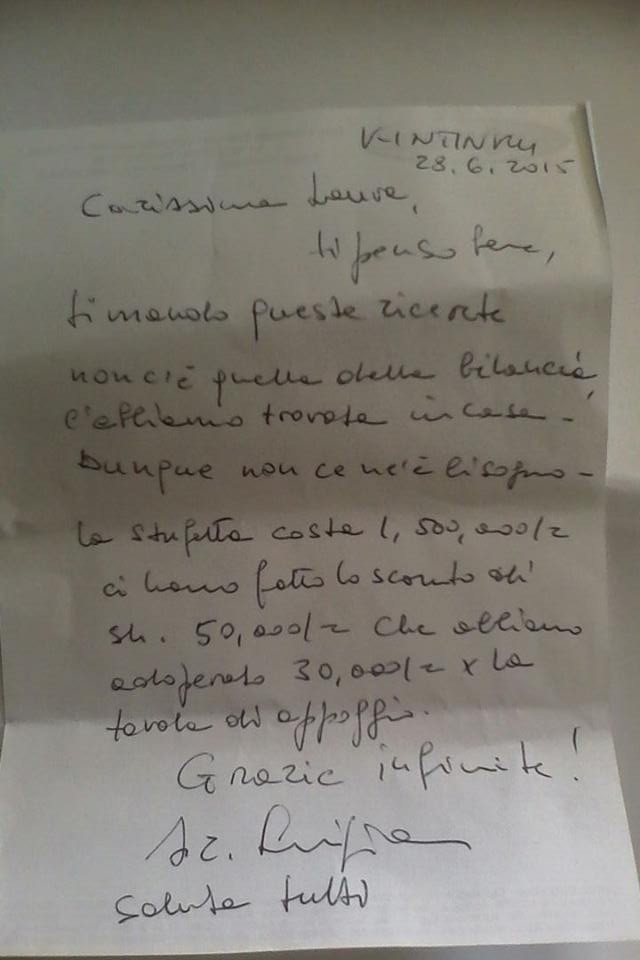 KINTINKU
28.6.2015
Carissima Laura,
ti penso bene,
ti mando queste ricevute
non c'è quella della bilancia,
l'abbiamo trovata in casa -
Dunque non ce ne'è bisogno -
la stufetta costa 1,500,000/=
ci hanno fatto lo sconto di
sh. 50,000/= che abbiamo
adoperato 30,000/= x la
tavola di appoggio.
Grazie infinite!
Sr. Luigia
saluta tutti